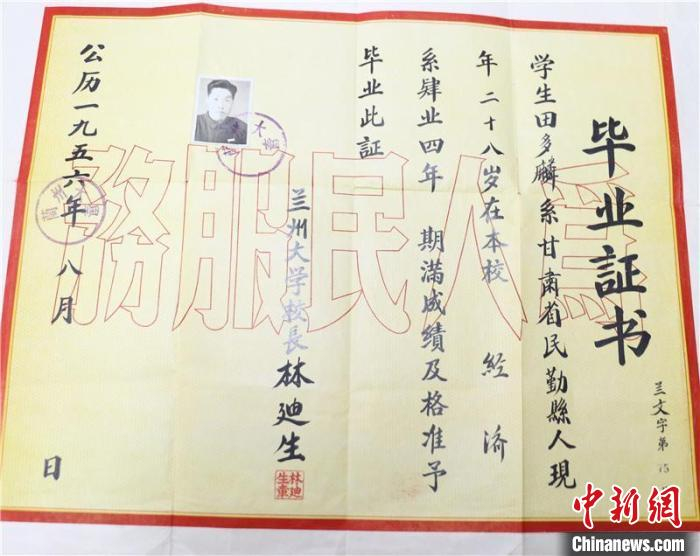 毕业証书
兰文字第 75
学生田多麟系甘肃省民勤縣人現
年二十八岁在本校 經济
系肄业四年 期滿成績及格准予
毕业此証
兰州大学校長林迪生
林迪生章
公历一九五六年八月 日
為人民服務
中新网
Chinanews.com